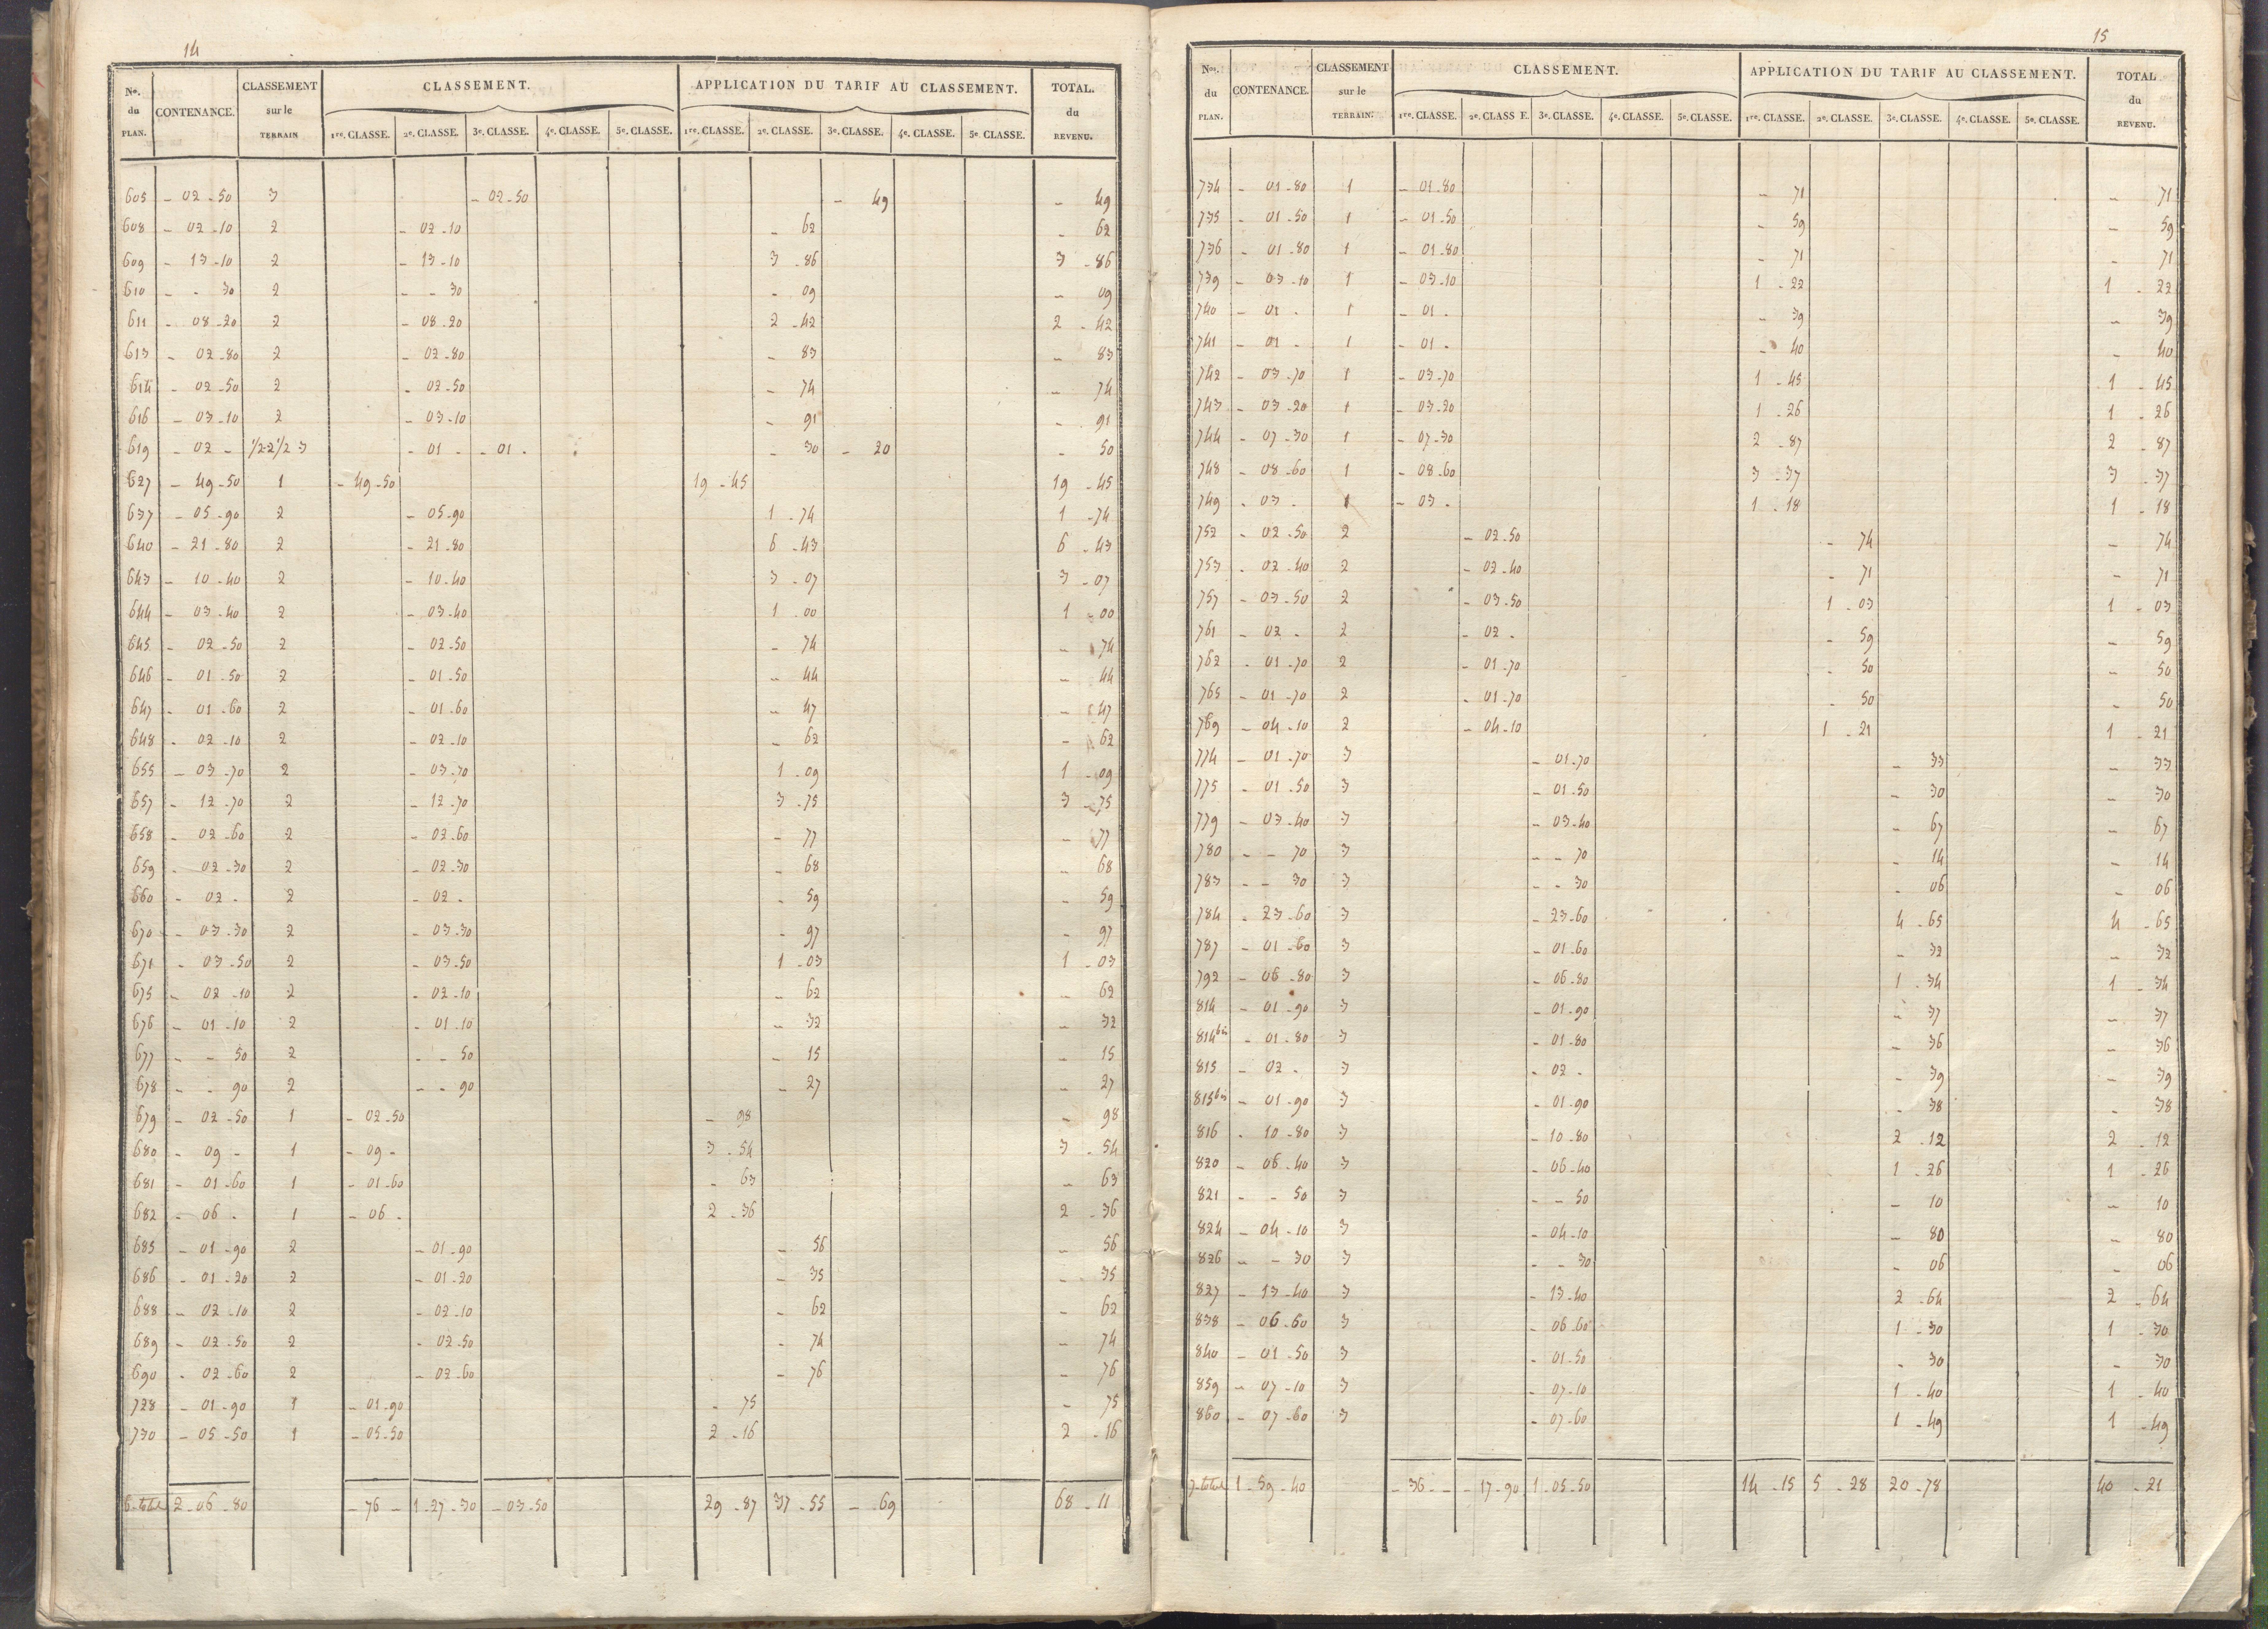 14
Nos. du PLAN. CONTENANCE. CLASSEMENT sur le TERRAIN CLASSEMENT. APPLICATION DU TARIF AU CLASSEMENT. TOTAL. du REVENU.
1re. CLASSE. 2e. CLASSE. 3e. CLASSE. 4e. CLASSE. 5e. CLASSE. 1re. CLASSE. 2e. CLASSE. 3e. CLASSE. 4e. CLASSE. 5e. CLASSE.
605 - 02-50 3 - 02-50 - 49 - 49
608 - 02-10 2 - 02-10 - 62 - 62
609 - 13-10 2 - 13-10 3-86 3-86
610 - - 30 2 - - 30 - 09 - 09
611 - 08-20 2 - 08-20 2-42 2-42
613 - 02-80 2 - 02-80 - 83 - 83
614 - 02-50 2 - 02-50 - 74 - 74
616 - 03-10 2 - 03-10 - 91 - 91
619 - 02 - 1/2 2 1/2 3 - 01 - - 01 - - 30 - 20 - 50
627 - 49-50 1 - 49-50 19-45 19-45
637 - 05-90 2 - 05-90 1-74 1-74
640 - 21-80 2 - 21-80 6-43 6-43
643 - 10-40 2 - 10-40 3-07 3-07
644 - 03-40 2 - 03-40 1-00 1-00
645 - 02-50 2 - 02-50 - 74 - 74
646 - 01-50 2 - 01-50 - 44 - 44
647 - 01-60 2 - 01-60 - 47 - 47
648 - 02-10 2 - 02-10 - 62 - 62
655 - 03-70 2 - 03-70 1-09 1-09
657 - 12-70 2 - 12-70 3-75 3-75
658 - 02-60 2 - 02-60 - 77 - 77
659 - 02-30 2 - 02-30 - 68 - 68
660 - 02 - 2 - 02 - - 59 - 59
670 - 03-30 2 - 03-30 - 97 - 97
671 - 03-50 2 - 03-50 1-03 1-03
675 - 02-10 2 - 02-10 - 62 - 62
676 - 01-10 2 - 01-10 - 32 - 32
677 - - 50 2 - - 50 - 15 - 15
678 - - 90 2 - - 90 - 27 - 27
679 - 02-50 1 - 02-50 - 98 - 98
680 - 09 - 1 - 09 - 3-54 3-54
681 - 01-60 1 - 01-60 - 63 - 63
682 - 06 - 1 - 06 - 2-36 2-36
685 - 01-90 2 - 01-90 - 56 - 56
686 - 01-20 2 - 01-20 - 35 - 35
688 - 02-10 2 - 02-10 - 62 - 62
689 - 02-50 2 - 02-50 - 74 - 74
690 - 02-60 2 - 02-60 - 76 - 76
728 - 01-90 1 - 01-90 - 75 - 75
730 - 05-50 1 - 05-50 2-16 2-16
6-total 2-06-80 - 76 - 1-27-30 - 03-50 29-87 37-55 - 69 68-11
15
Nos. du PLAN. CONTENANCE. CLASSEMENT sur le TERRAIN. CLASSEMENT. APPLICATION DU TARIF AU CLASSEMENT. TOTAL du REVENU.
1re. CLASSE. 2e. CLASSE. 3e. CLASSE. 4e. CLASSE. 5e. CLASSE. 1re. CLASSE. 2e. CLASSE. 3e. CLASSE. 4e. CLASSE. 5e. CLASSE.
734 - 01-80 1 - 01-80 - 71 - 71
735 - 01-50 1 - 01-50 - 59 - 59
736 - 01-80 1 - 01-80 - 71 - 71
739 - 03-10 1 - 03-10 1-22 1-22
740 - 01 - 1 - 01 - - 39 - 39
741 - 01 - 1 - 01 - - 40 - 40
742 - 03-70 1 - 03-70 1-45 1-45
743 - 03-20 1 - 03-20 1-26 1-26
744 - 07-30 1 - 07-30 2-87 2-87
748 - 08-60 1 - 08-60 3-37 3-37
749 - 03 - 1 - 03 - 1-18 1-18
752 - 02-50 2 - 02-50 - 74 - 74
753 - 02-40 2 - 02-40 - 71 - 71
757 - 03-50 2 - 03-50 1-03 1-03
761 - 02 - 2 - 02 - - 59 - 59
762 - 01-70 2 - 01-70 - 50 - 50
765 - 01-70 2 - 01-70 - 50 - 50
769 - 04-10 2 - 04-10 1-21 1-21
774 - 01-70 3 - 01-70 - 33 - 33
775 - 01-50 3 - 01-50 - 30 - 30
779 - 03-40 3 - 03-40 - 67 - 67
780 - - 70 3 - - 70 - 14 - 14
783 - - 30 3 - - 30 - 06 - 06
784 - 23-60 3 - 23-60 4-65 4-65
787 - 01-60 3 - 01-60 - 32 - 32
792 - 06-80 3 - 06-80 1-34 1-34
814 - 01-90 3 - 01-90 - 37 - 37
814 bis - 01-80 3 - 01-80 - 36 - 36
815 - 02 - 3 - 02 - - 39 - 39
815 bis - 01-90 3 - 01-90 - 38 - 38
816 - 10-80 3 - 10-80 2-12 2-12
820 - 06-40 3 - 06-40 1-26 1-26
821 - - 50 3 - - 50 - 10 - 10
824 - 04-10 3 - 04-10 - 80 - 80
826 - - 30 3 - - 30 - 06 - 06
827 - 13-40 3 - 13-40 2-64 2-64
838 - 06-60 3 - 06-60 1-30 1-30
840 - 01-50 3 - 01-50 - 30 - 30
859 - 07-10 3 - 07-10 1-40 1-40
860 - 07-60 3 - 07-60 1-49 1-49
7-total 1-59-40 - 36 - - - 17-90 1-05-50 14-15 5-28 20-78 40-21